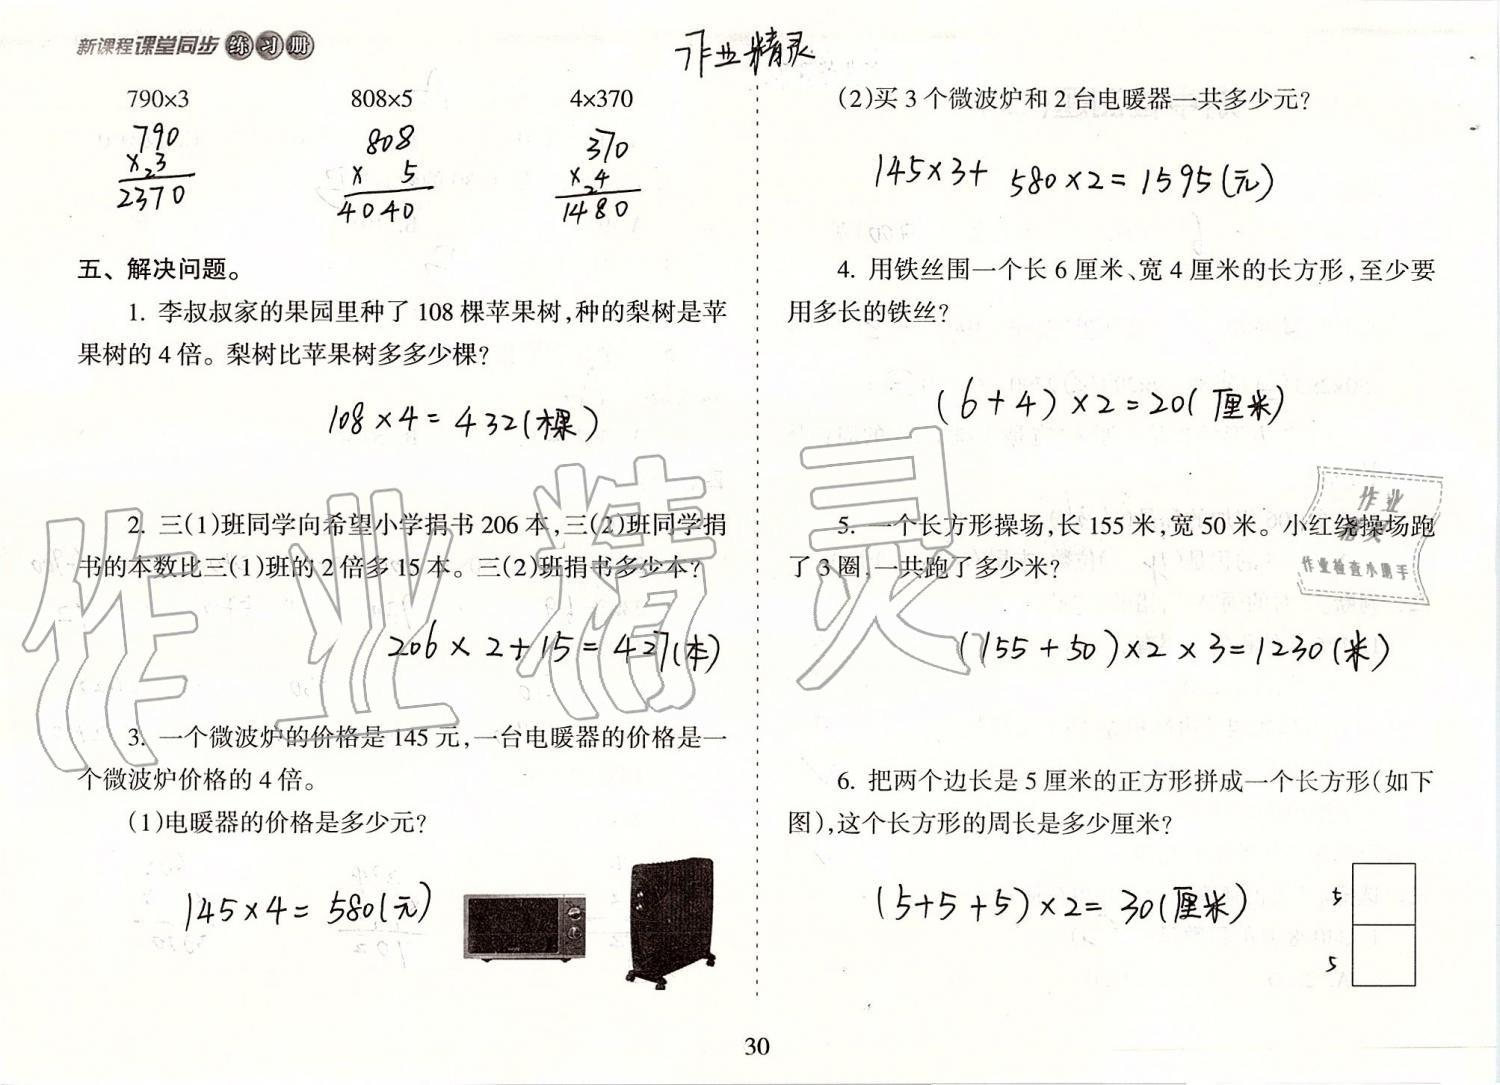 新课程课堂同步练习册
作业精灵
790×3 808×5 4×370
790
×₂3
2370
808
× 5
4040
370
×₂4
1480
五、解决问题。
1. 李叔叔家的果园里种了 108 棵苹果树,种的梨树是苹
果树的 4 倍。梨树比苹果树多多少棵?
108×4=432(棵)
2. 三(1)班同学向希望小学捐书 206 本,三(2)班同学捐
书的本数比三(1)班的 2 倍多 15 本。三(2)班捐书多少本?
206×2+15=427(本)
3. 一个微波炉的价格是 145 元,一台电暖器的价格是一
个微波炉价格的 4 倍。
(1)电暖器的价格是多少元?
145×4=580(元)
(2)买 3 个微波炉和 2 台电暖器一共多少元?
145×3+580×2=1595(元)
4. 用铁丝围一个长 6 厘米、宽 4 厘米的长方形,至少要
用多长的铁丝?
(6+4)×2=20(厘米)
5. 一个长方形操场,长 155 米,宽 50 米。小红绕操场跑
了 3 圈,一共跑了多少米?
(155+50)×2×3=1230(米)
6. 把两个边长是 5 厘米的正方形拼成一个长方形(如下
图),这个长方形的周长是多少厘米?
(5+5+5)×2=30(厘米)
5
5
作业精灵
作业
精灵
作业检查小助手
30